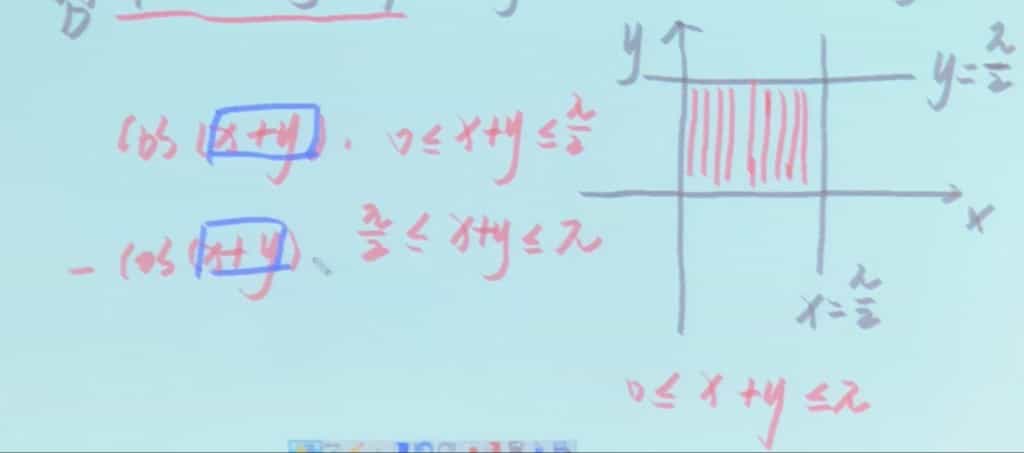 D
cos (x+y). 0 ≤ x+y ≤ π/2
- cos (x+y). π/2 ≤ x+y ≤ π
y
y = π/2
x
x = π/2
0 ≤ x+y ≤ π